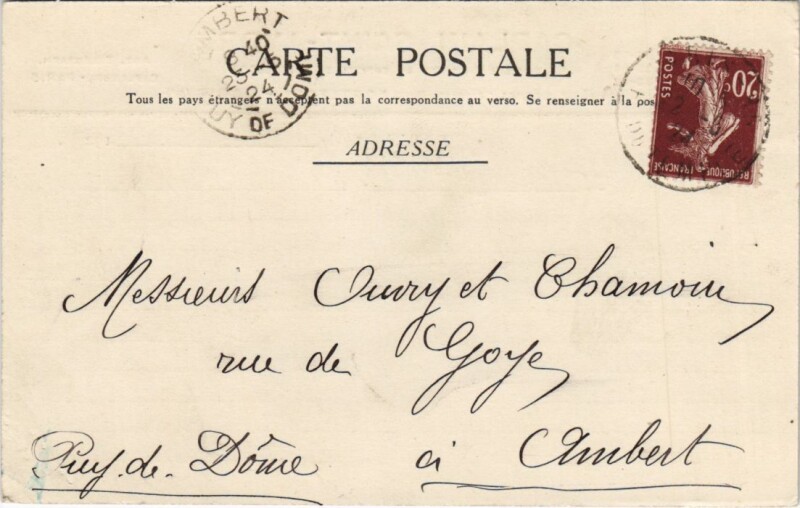 CARTE POSTALE
Tous les pays étrangers n'acceptent pas la correspondance au verso. Se renseigner à la pos
ADRESSE
Messieurs Ouvry et Chamoin
rue de Goye
Puy-de-Dôme à Ambert
MBERT
PUY DE DOME
20c
POSTES
REPUBLIQUE FRANCAISE